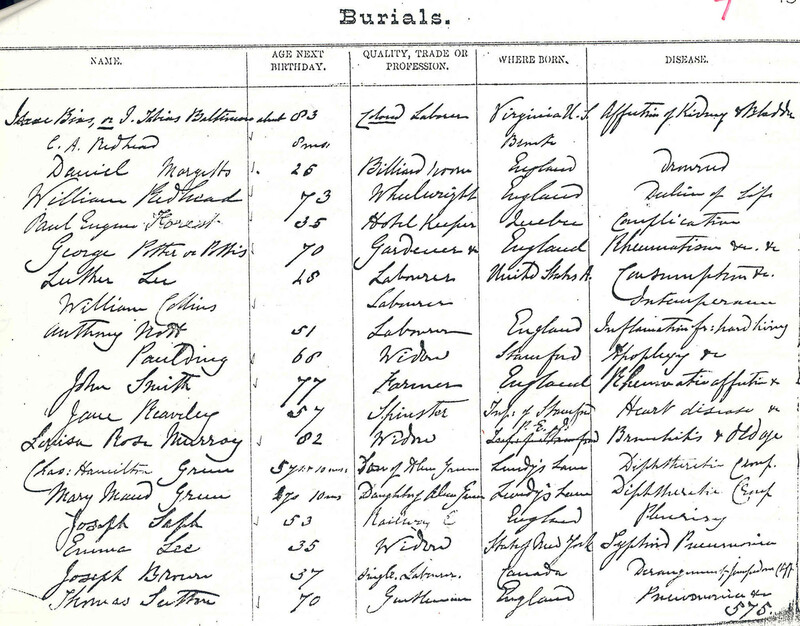 Burials.
NAME. AGE NEXT BIRTHDAY. QUALITY, TRADE OR PROFESSION. WHERE BORN. DISEASE.
Isaac Bias, or I. Tobias Baltimore about 83 Colored Labourer Virginia U.S Affection of Kidney & Bladder
C. A. Redhead 8 mos. 
Daniel Margetts 26 Billiard room England Drowned
William Redhead 73 Wheelwright England Decline of Life
Paul Eugene Forest 35 Hotel Keeper Quebec Complication
George Potter or Pottis 70 Gardener & England Rheumatism &c. &
Luther Lee 48 Labourer United States A. Consumption &c.
William Collins Labourer Intemperance
Anthony Nott 51 Labourer England Inflamation fr: hard living
Paulding 68 Widow Stamford Apoplexy &c
John Smith 77 Farmer England Rheumatic affection &
Jane Reaveley 57 Spinster Tnsp: of Stamford Heart disease &
P.E.I.
Louisa Rose Murray 82 Widow Bronchitis & Old age
Chas: Hamilton Green 5 yrs 10 mos Son of Green Lundy's Lane Diphtheretic Croup.
Mary Maud Green 2 yrs 10 mos Daughter Green Lundy's Lane Diphtheretic Croup
Joseph Saph 53 Railway E England Plurisy
Emma Lee 35 Widow State of New York Typhoid Pneumonia
Joseph Brown 37 Single. Labourer. Canada
Thomas Sutton 70 Gentleman England Pneumonia &c
575.